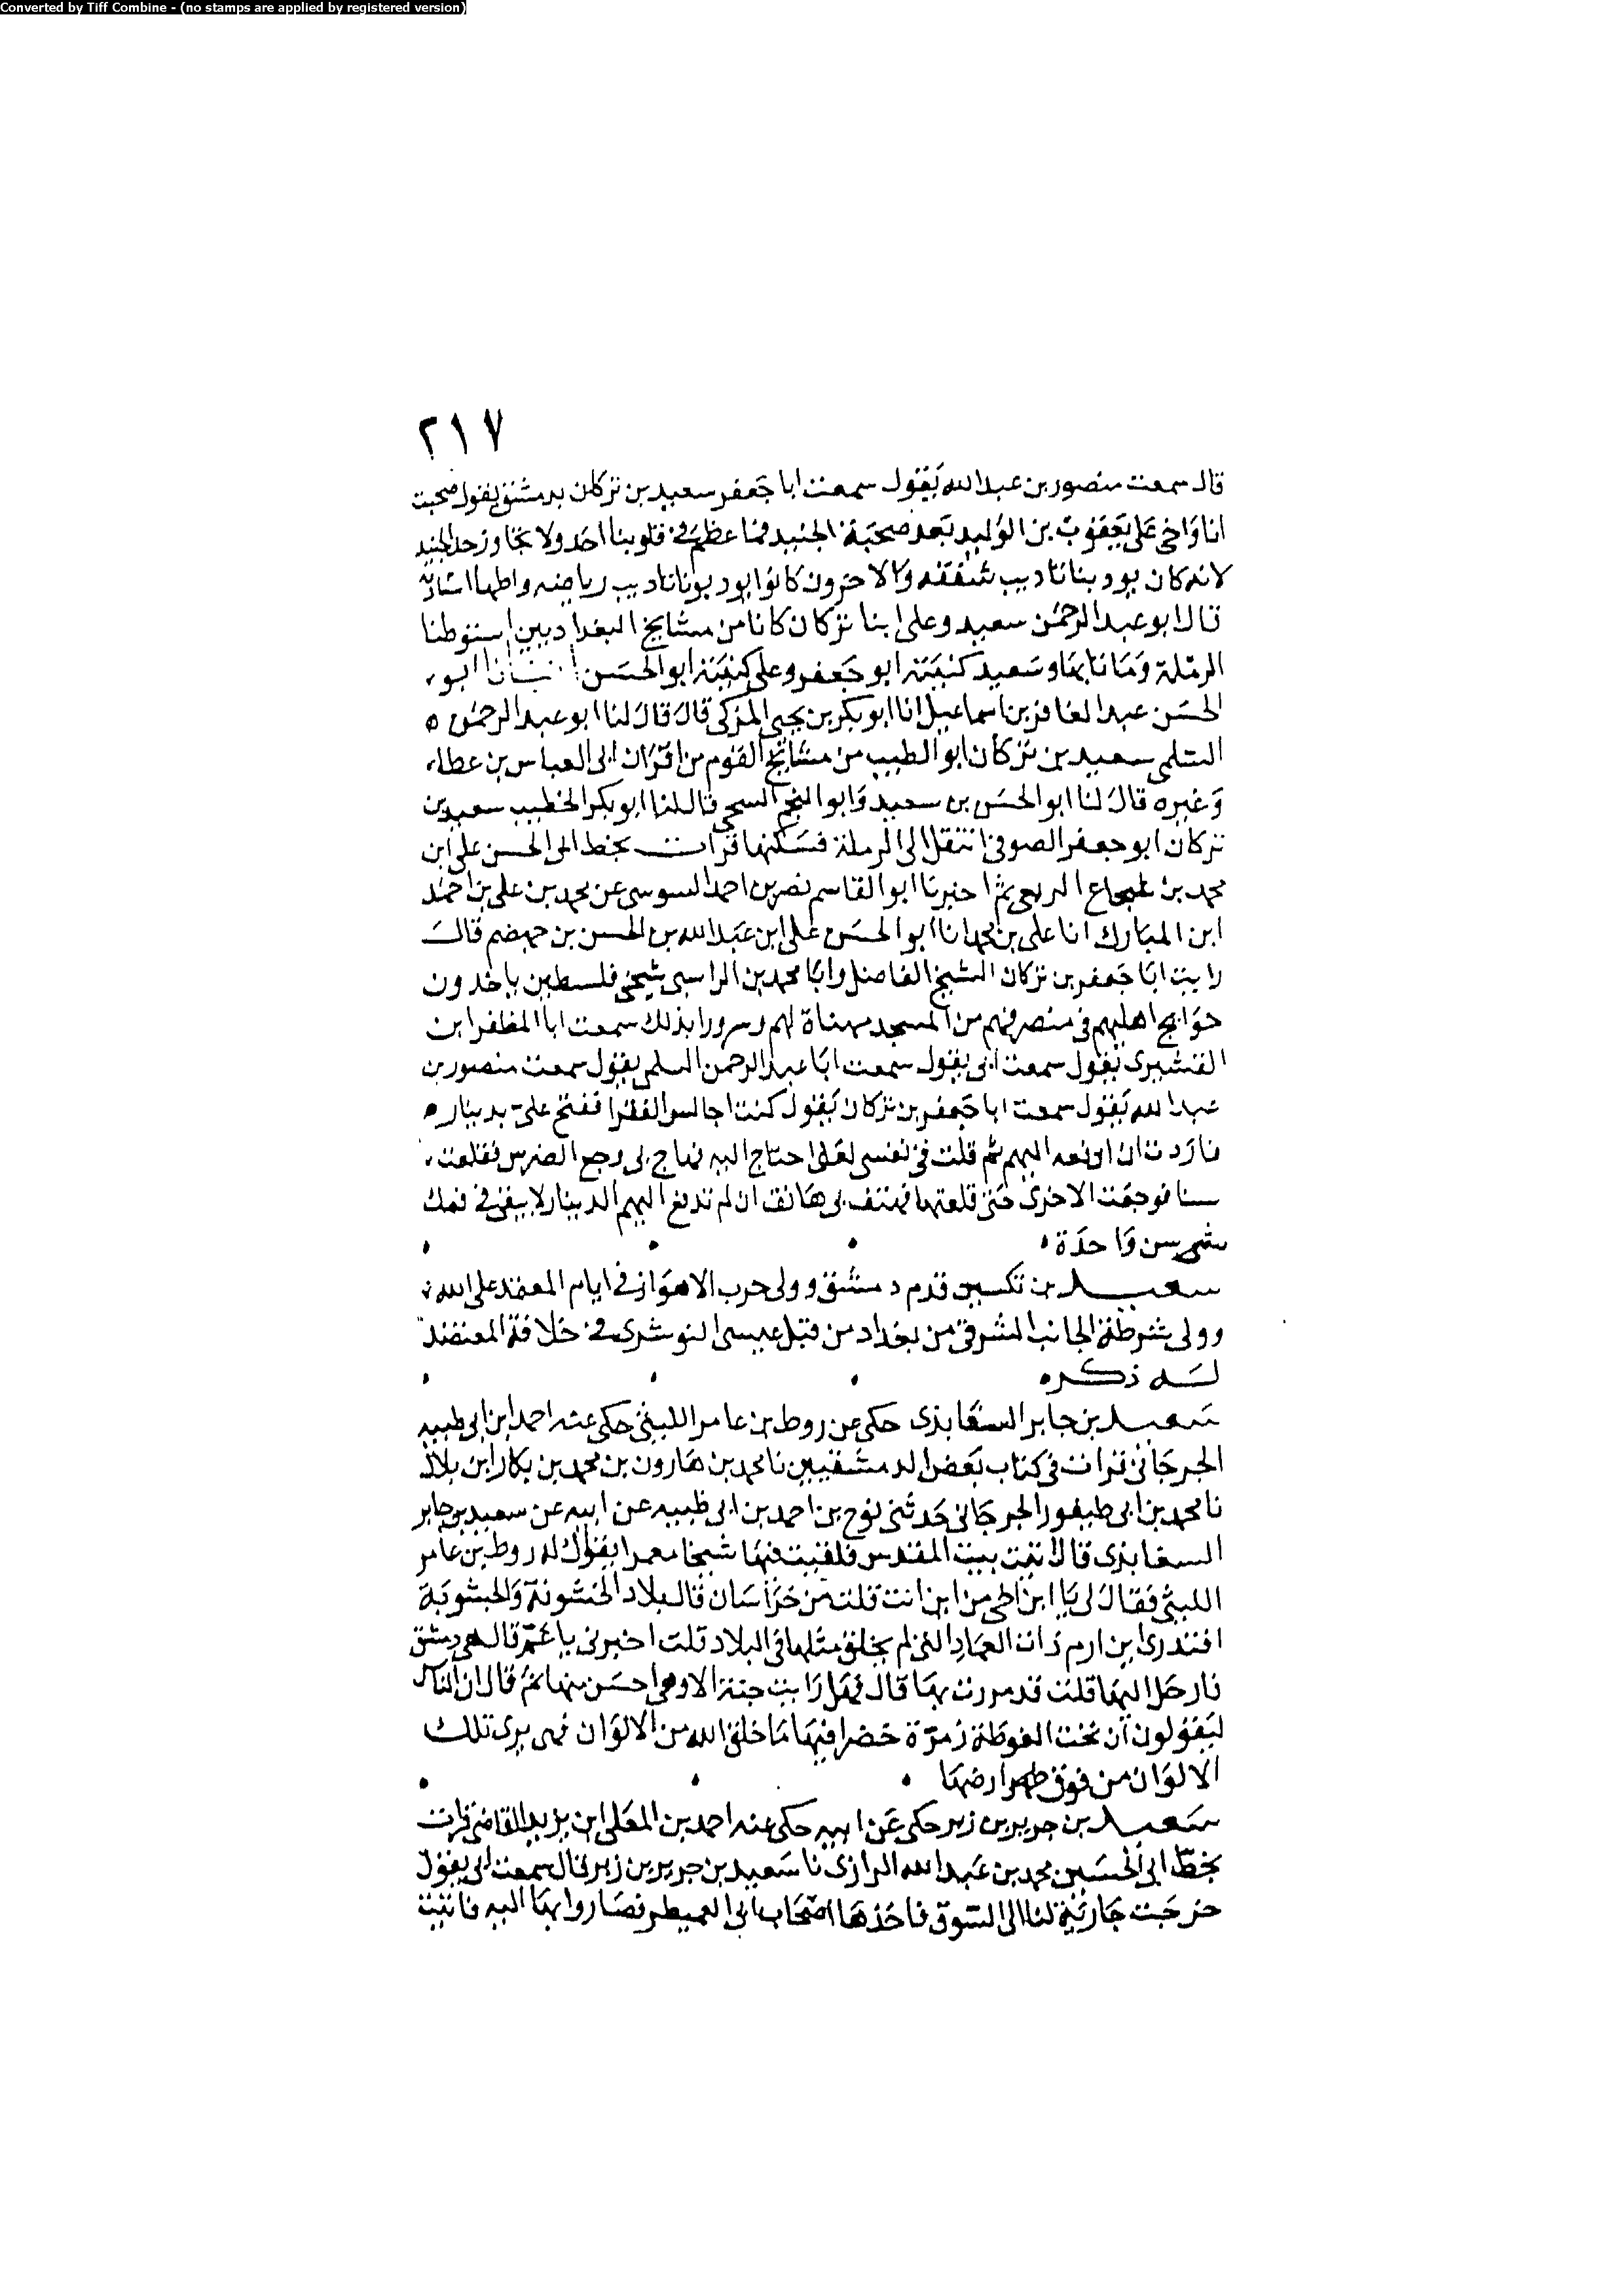 Converted by Tiff Combine - (no stamps are applied by registered version)
٢١٧
قال سمعت منصور بن عبد الله يقول سمعت ابا جعفر سعيد بن تركان بدمشق يقول صحبت
انا واخى على يعقوب بن الوليد بعد صحبة الجنيد فما عظم فى قلوبنا احد ولا تجاوز حد الجنيد
لانه كان يودبنا تاديب شفقه والاخرون كانوا يودبونا تاديب رياضه واظهار استاذيه
قال ابو عبد الرحمن سعيد وعلى ابنا تركان كانا من مشايخ البغداديين استوطنا
الرملة وماتا بها وسعيد كنيته ابو جعفر وعلى كنيته ابو الحسن انبانا ابو
الحسن عبد الغافر بن اسماعيل انا ابو بكر بن يحيى المزكى قال قال لنا ابو عبد الرحمن
السلمى سعيد بن تركان ابو الطيب من مشايخ القوم من اقران ابى العباس بن عطاء
وغيره قال لنا ابو الحسن بن سعيد وابو النجم السحى قال لنا ابو بكر الخطيب سعيد بن
تركان ابو جعفر الصوفى انتقل الى الرملة فسكنها قرات بخط ابى الحسن على ابن
محمد بن شجاع الربعى ثم اخبرنا ابو القاسم نصر بن احمد السوسى عن محمد بن على بن احمد
ابن المبارك انا على بن محمد انا ابو الحسن على ابن عبد الله بن الحسن بن جهضم قال
رايت ابا جعفر بن تركان الشيخ الفاضل وابا محمد بن الراسبى شيخى فلسطين ياخذون
حوايج اهليهم فى منصرفهم من المسجد مهناة لهم وسرورا بذلك سمعت ابا المظفر ابن
القشيرى يقول سمعت ابى يقول سمعت ابا عبد الرحمن السلمى يقول سمعت منصور بن
عبد الله يقول سمعت ابا جعفر بن تركان يقول كنت اجالس الفقرا ففتح على بدينار
فاردت ان ادفعه اليهم ثم قلت فى نفسى لعلى احتاج اليه فهاج بى وجع الضرس فقلعت
سنا فوجعت الاخرى حتى قلعتها فهتف بى هاتف ان لم تدفع اليهم الدينار لا يبقى فى فمك
سن واحدة
سعيد بن تكسين قدم دمشق وولى حرب الاهواز فى ايام المعتمد على الله
وولى شرطة الجانب الشرقى من بغداد من قبل عيسى النوشرى فى خلافة المعتضد
له ذكر
سعيد بن جابر السغابذى حكى عن روط بن عامر الليثى حكى عنه احمد ابن ابى طيبه
الجرجانى قرات فى كتاب بعض الدمشقيين نا محمد بن هارون بن محمد بن بكار ابن بلال
نا محمد بن ابى طيفور الجرجانى حدثنى نوح بن احمد بن ابى ظبيه عن ابيه عن سعيد بن جابر
السغابذى قال اتيت بيت المقدس فلقيت فيها شيخا معمرا يقول له روط بن عامر
الليثى فقال لى يا ابن اخى من اين انت قلت من خراسان قال بلاد الخشونة والجشوبة
افتدرى اين ارم ذات العماد التى لم يخلق مثلها فى البلاد قلت اخبرنى يا عم قال هى دمشق
فارحل اليها قلت قد مررت بها قال فهل رايت جنة الا وهى احسن منها ثم قال ان الناس
ليقولون ان تحت الغوطة زمرة خضرا فيها ما خلق الله من الالوان فهى يرى تلك
الالوان من فوق ظهر ارضها
سعيد بن جرير بن زبر حكى عن ابيه حكى عنه احمد بن المعلى ابن يزيد القاضى قرات
بخط ابى الحسين محمد بن عبد الله الرازى نا سعيد بن جرير بن زبر قال سمعت ابى يقول
خرجت جارية لنا الى السوق فاخذها اصحاب ابى العميطر فصاروا بها اليه فاتيت